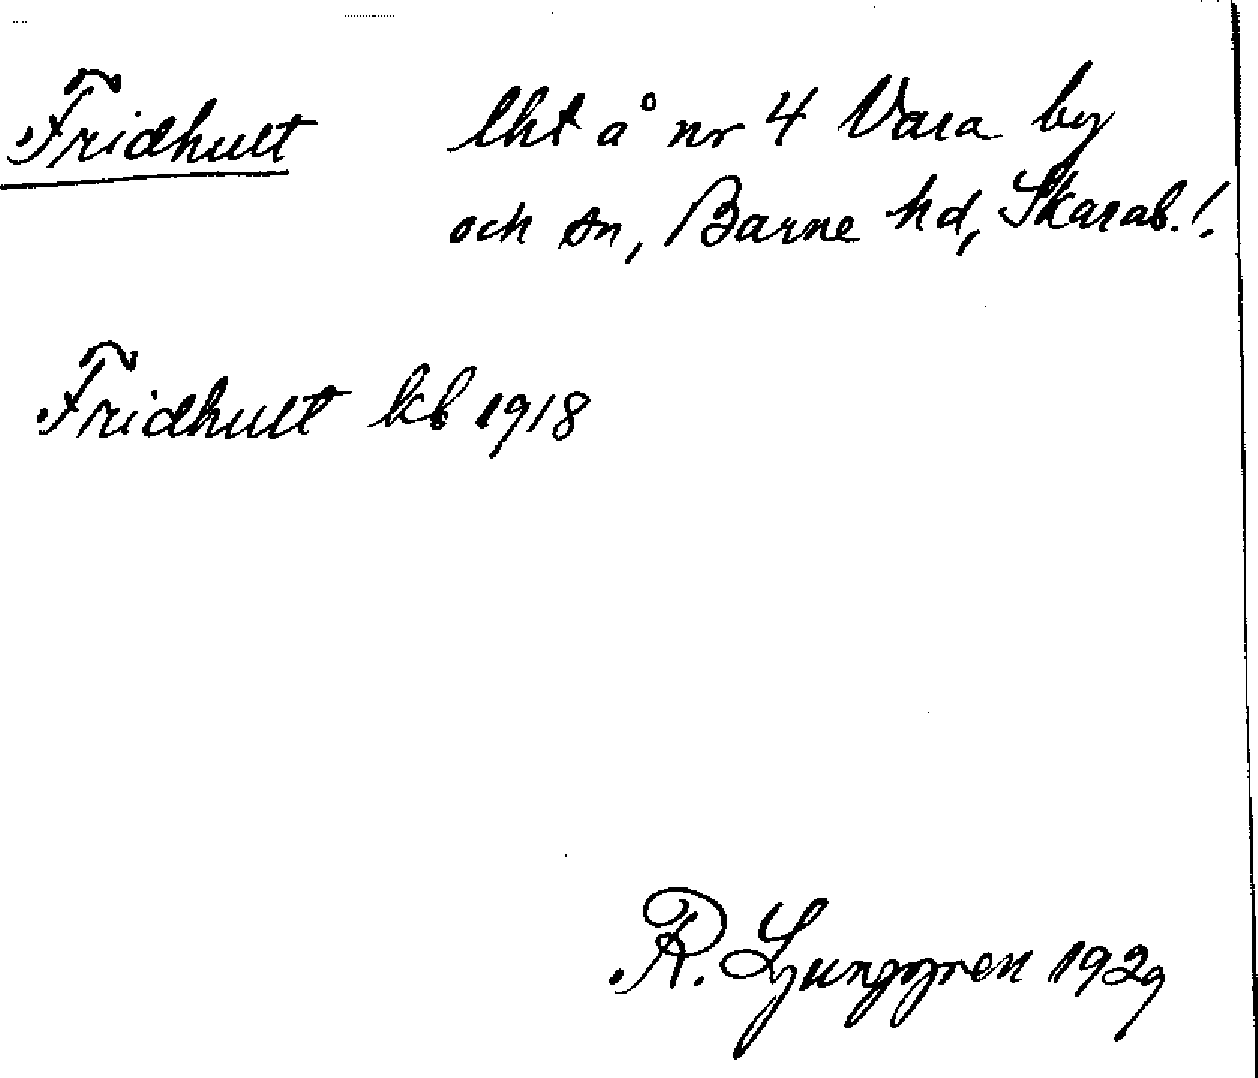 Fridhult lht å nr 4 Vara by
och sn, Barne hd, Skarab.!
Fridhult kb 1918
R. Ljunggren 1929